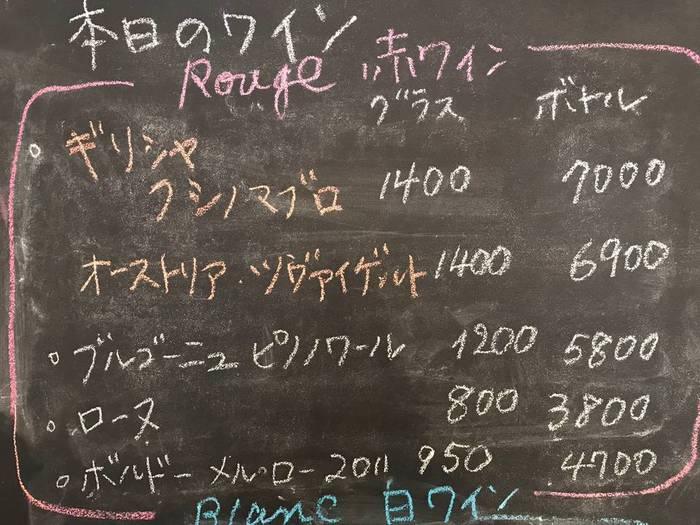 本日のワイン
Rouge 赤ワイン
グラス ボトル
ギリシャ
クシノマブロ 1400 7000
オーストリア・ツヴァイゲルト 1400 6900
ブルゴーニュ ピノノワール 1200 5800
ローヌ 800 3800
ボルドー メル・ロー 2011 950 4700
Blanc 白ワイン